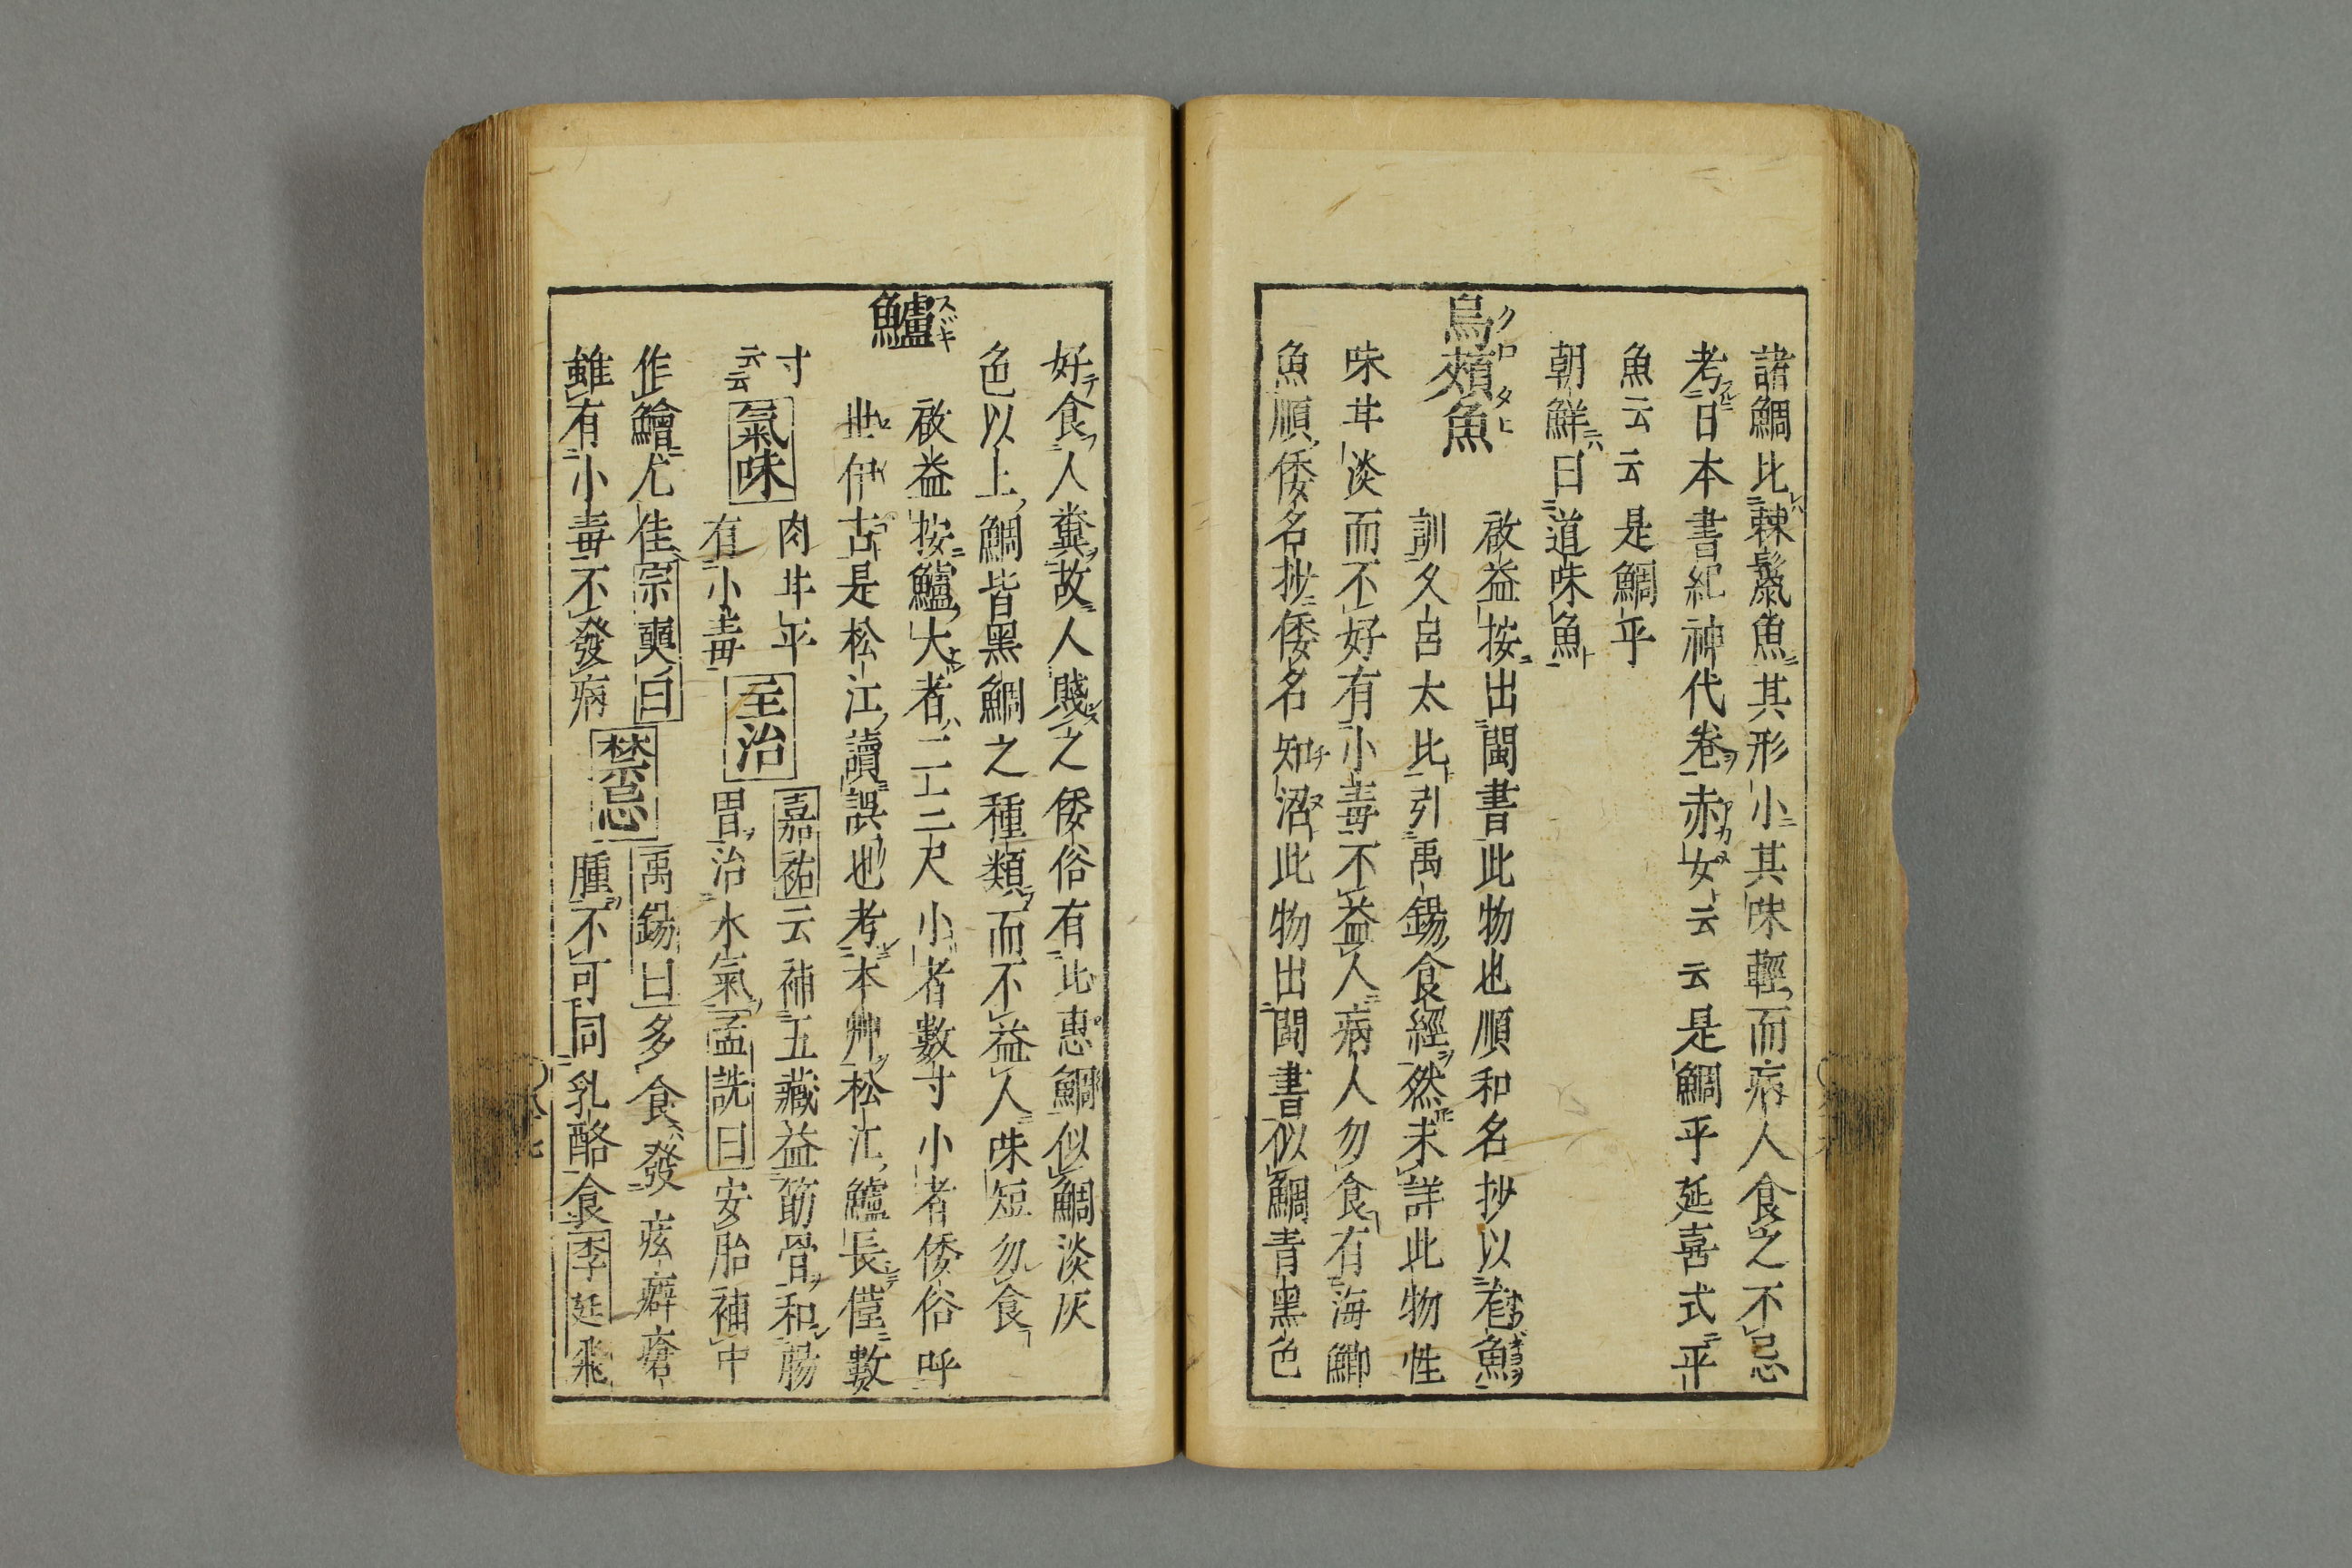 諸鯛比棘鬣魚其形小其味輕而病人食之不忌
考日本書紀神代卷赤女云云是鯛乎延喜式平
魚云云是鯛乎
朝鮮曰道味魚
烏頰魚
啟益按出閩書此物也順和名抄以
訓久呂太比引禹錫食經然未詳此物性
味甘淡而不好有小毒不益人病人勿食有海鯽
魚順倭名抄倭名知沼此物出閩書似鯛青黑色
好食人糞故人賤之倭俗有比惠鯛似鯛淡灰
色以上鯛皆黑鯛之種類而不益人味短勿食
鱸
啟益按鱸大者二三尺小者數寸小者倭俗呼
世伊古是松江讀誤也考本艸松江鱸長僅數
寸云云
氣味
肉甘平有小毒
主治
嘉祐云補五藏益筋骨和腸
胃治水氣孟詵曰安胎補中
作鱠尤佳宗奭曰
雖有小毒不發病
禁忌
禹錫曰多食發痃癖瘡
腫不可同乳酪食李延飛